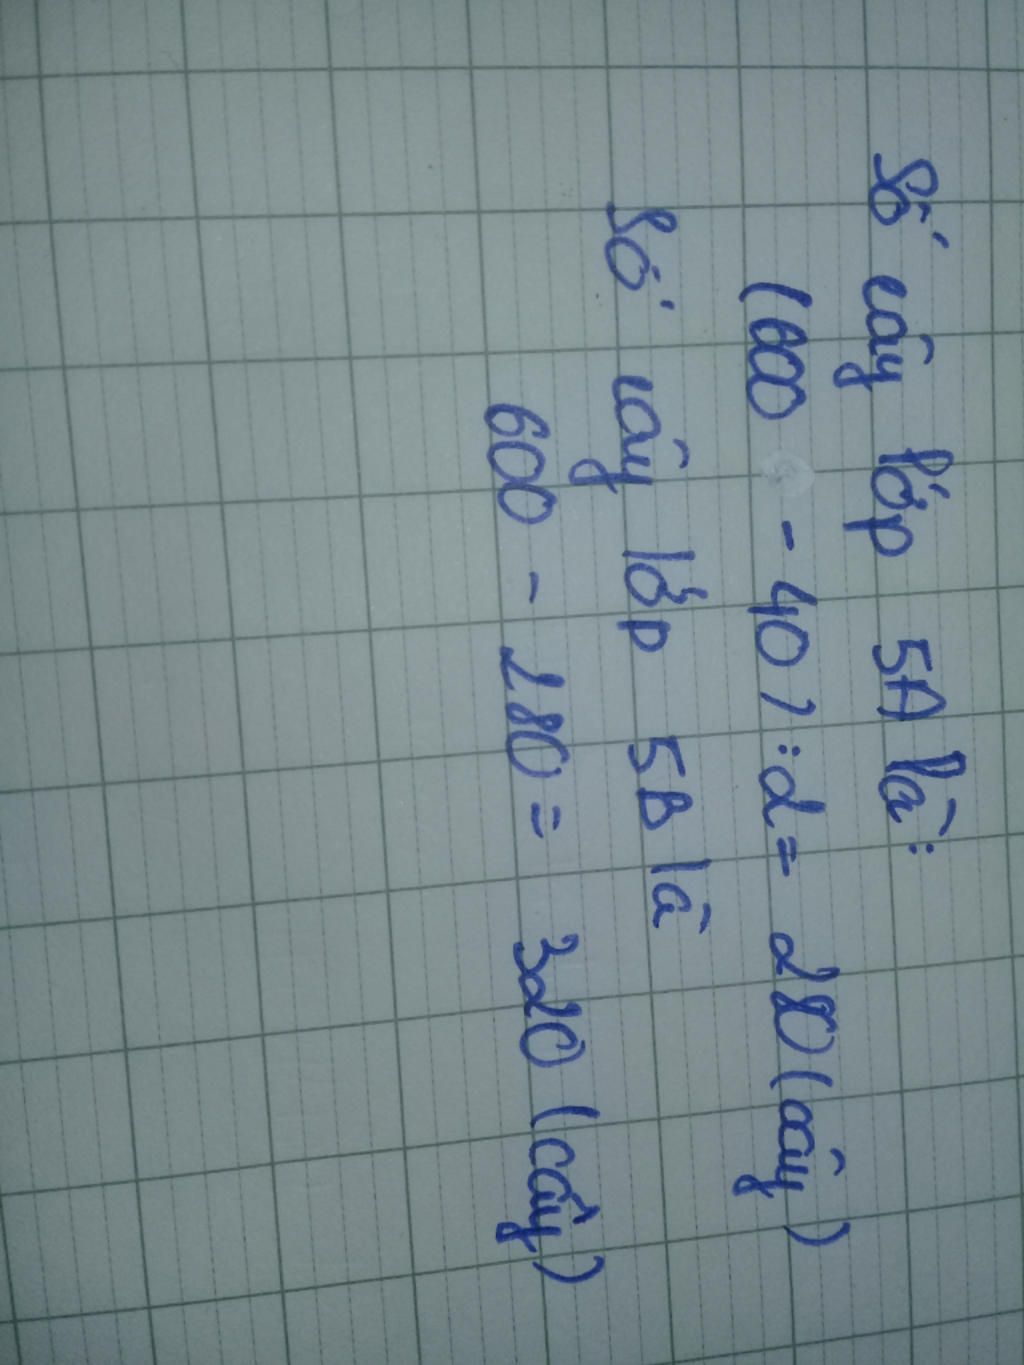 Số cây lớp 5A là:
(600 - 40) : 2 = 280 (cây)
Số cây lớp 5B là
600 - 280 = 320 (cây)